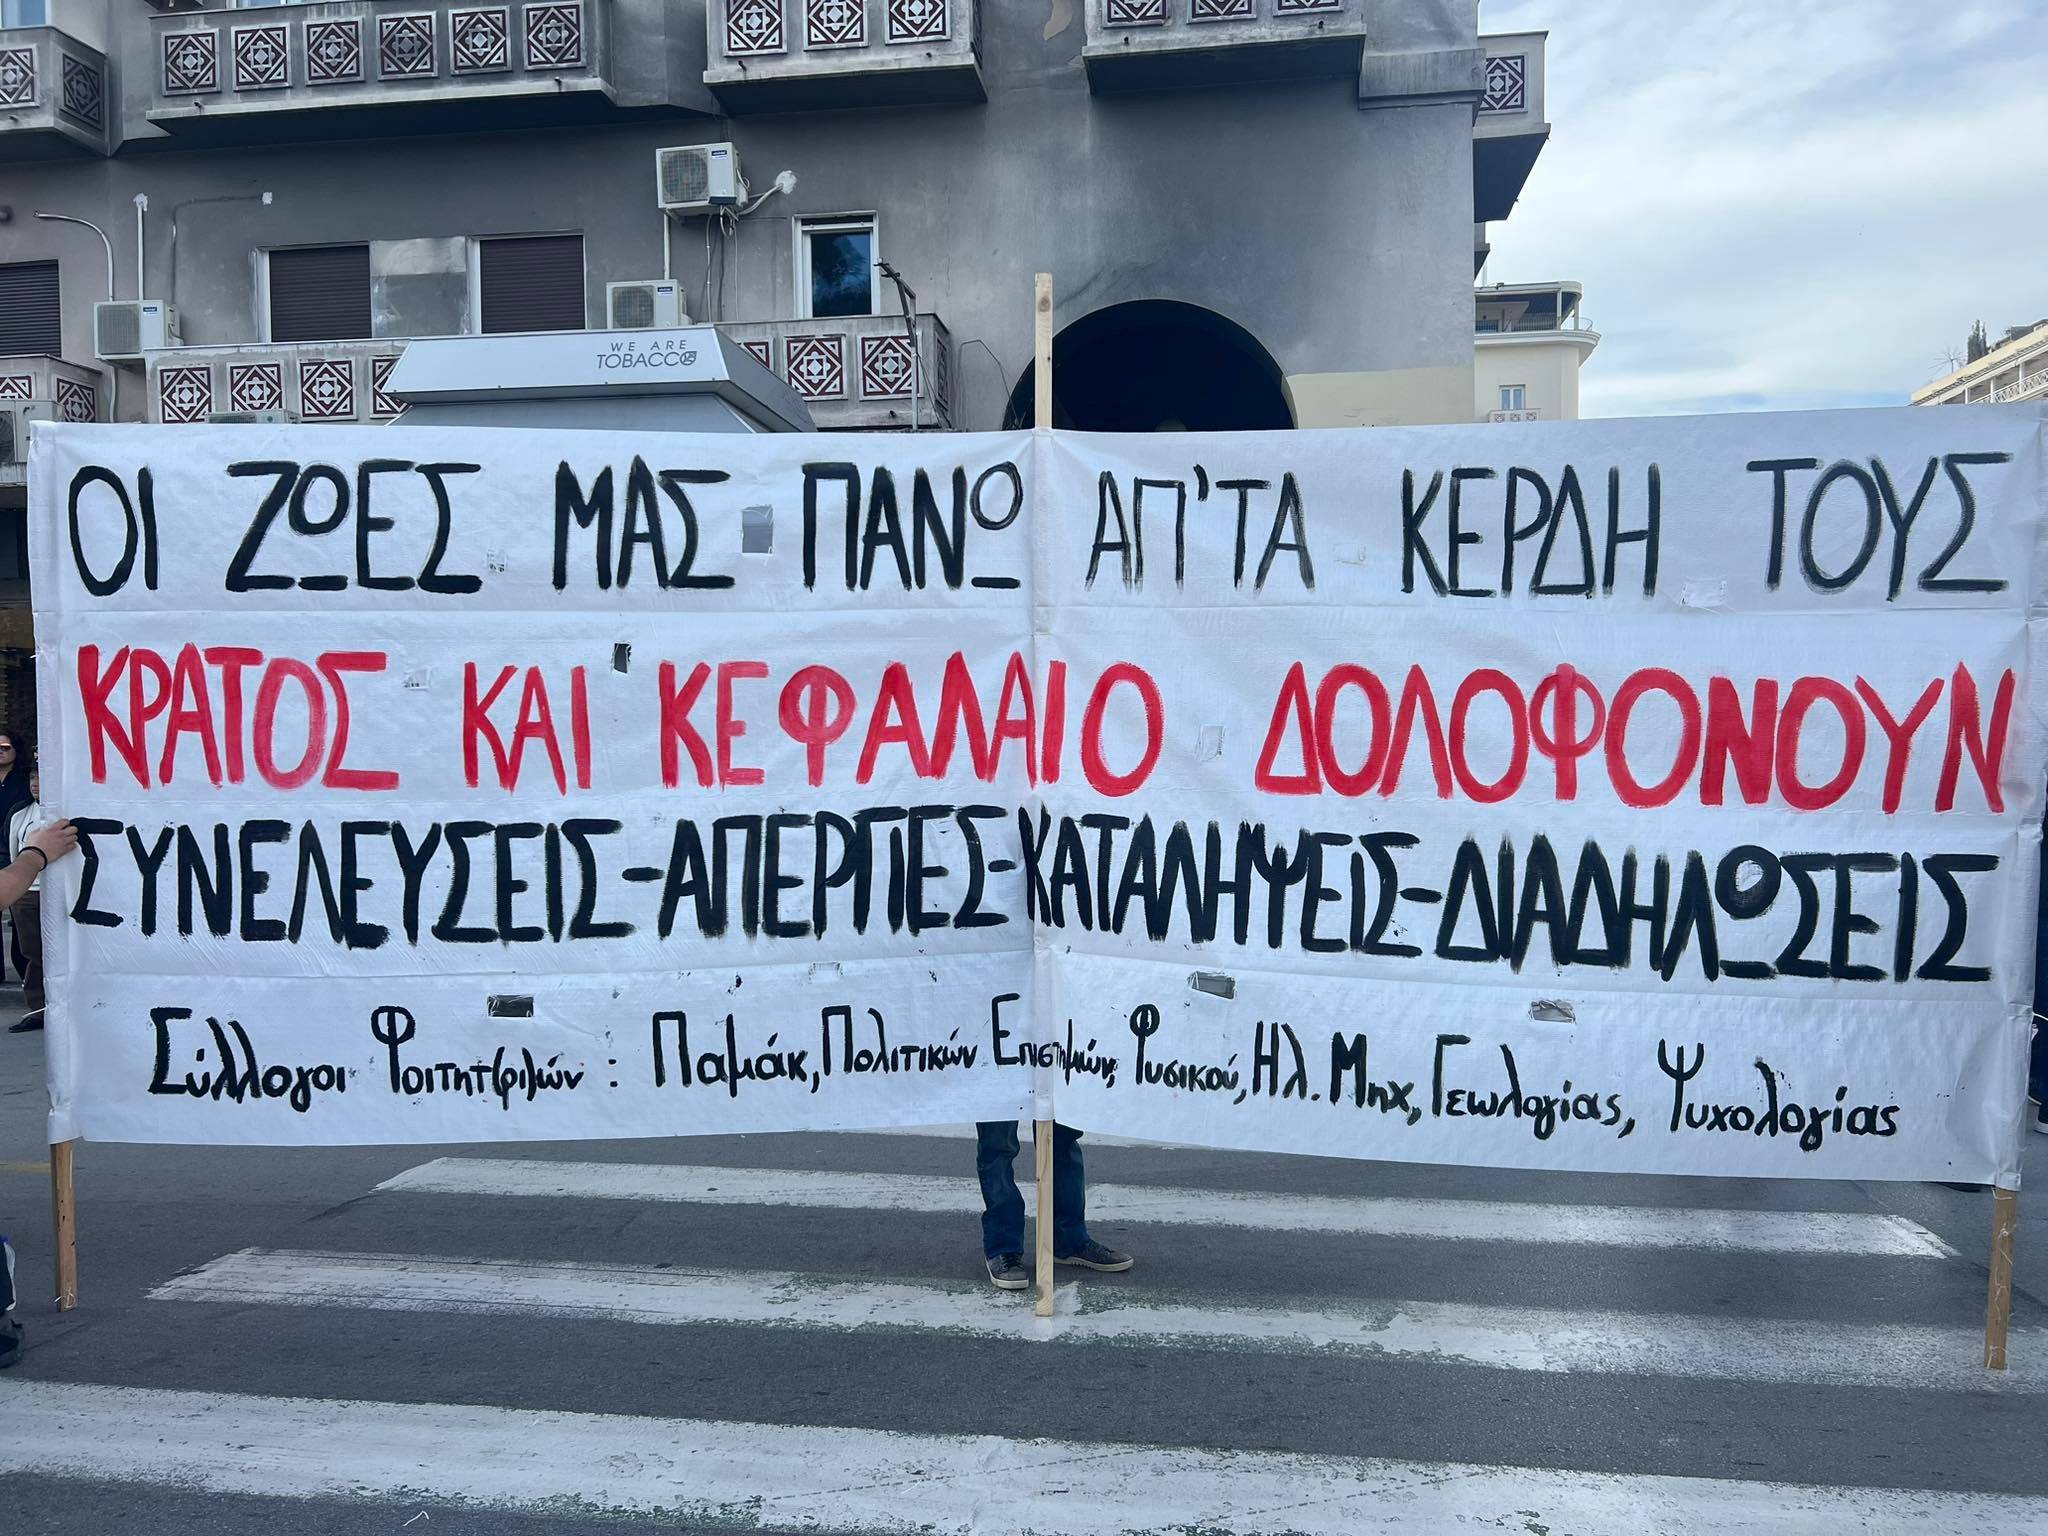 WE ARE
TOBACCO
ΟΙ ΖΩΕΣ ΜΑΣ ΠΑΝΩ ΑΠ'ΤΑ ΚΕΡΔΗ ΤΟΥΣ
ΚΡΑΤΟΣ ΚΑΙ ΚΕΦΑΛΑΙΟ ΔΟΛΟΦΟΝΟΥΝ
ΣΥΝΕΛΕΥΣΕΙΣ-ΑΠΕΡΓΙΕΣ-ΚΑΤΑΛΗΨΕΙΣ-ΔΙΑΔΗΛΩΣΕΙΣ
Σύλλογοι Φοιτητ(ρι)ών : Παμάκ, Πολιτικών Επιστημών, Φυσικού, Ηλ. Μηχ, Γεωλογίας, Ψυχολογίας